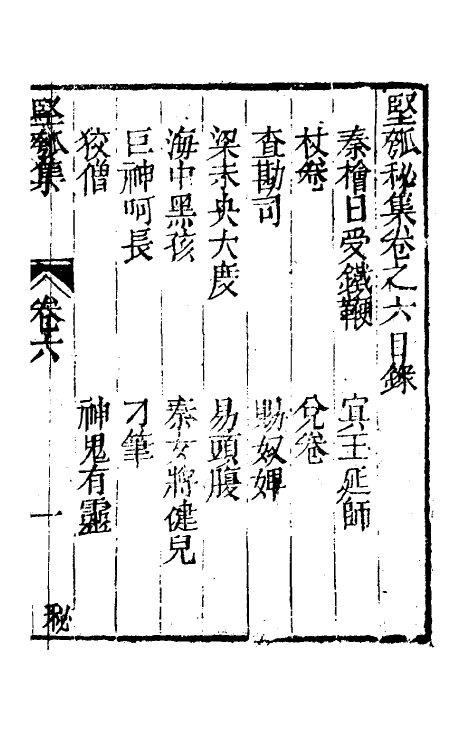 堅瓠秘集卷之六目錄
秦檜日受鐵鞭　冥王延師
杖卷　兌卷
查勘司　賜奴婢
梁未央大度　易頭腹
海中黑孩　秦女將健兒
巨神呵長　刁筆
狡僧　神鬼有靈
堅瓠集　卷六　一　秘